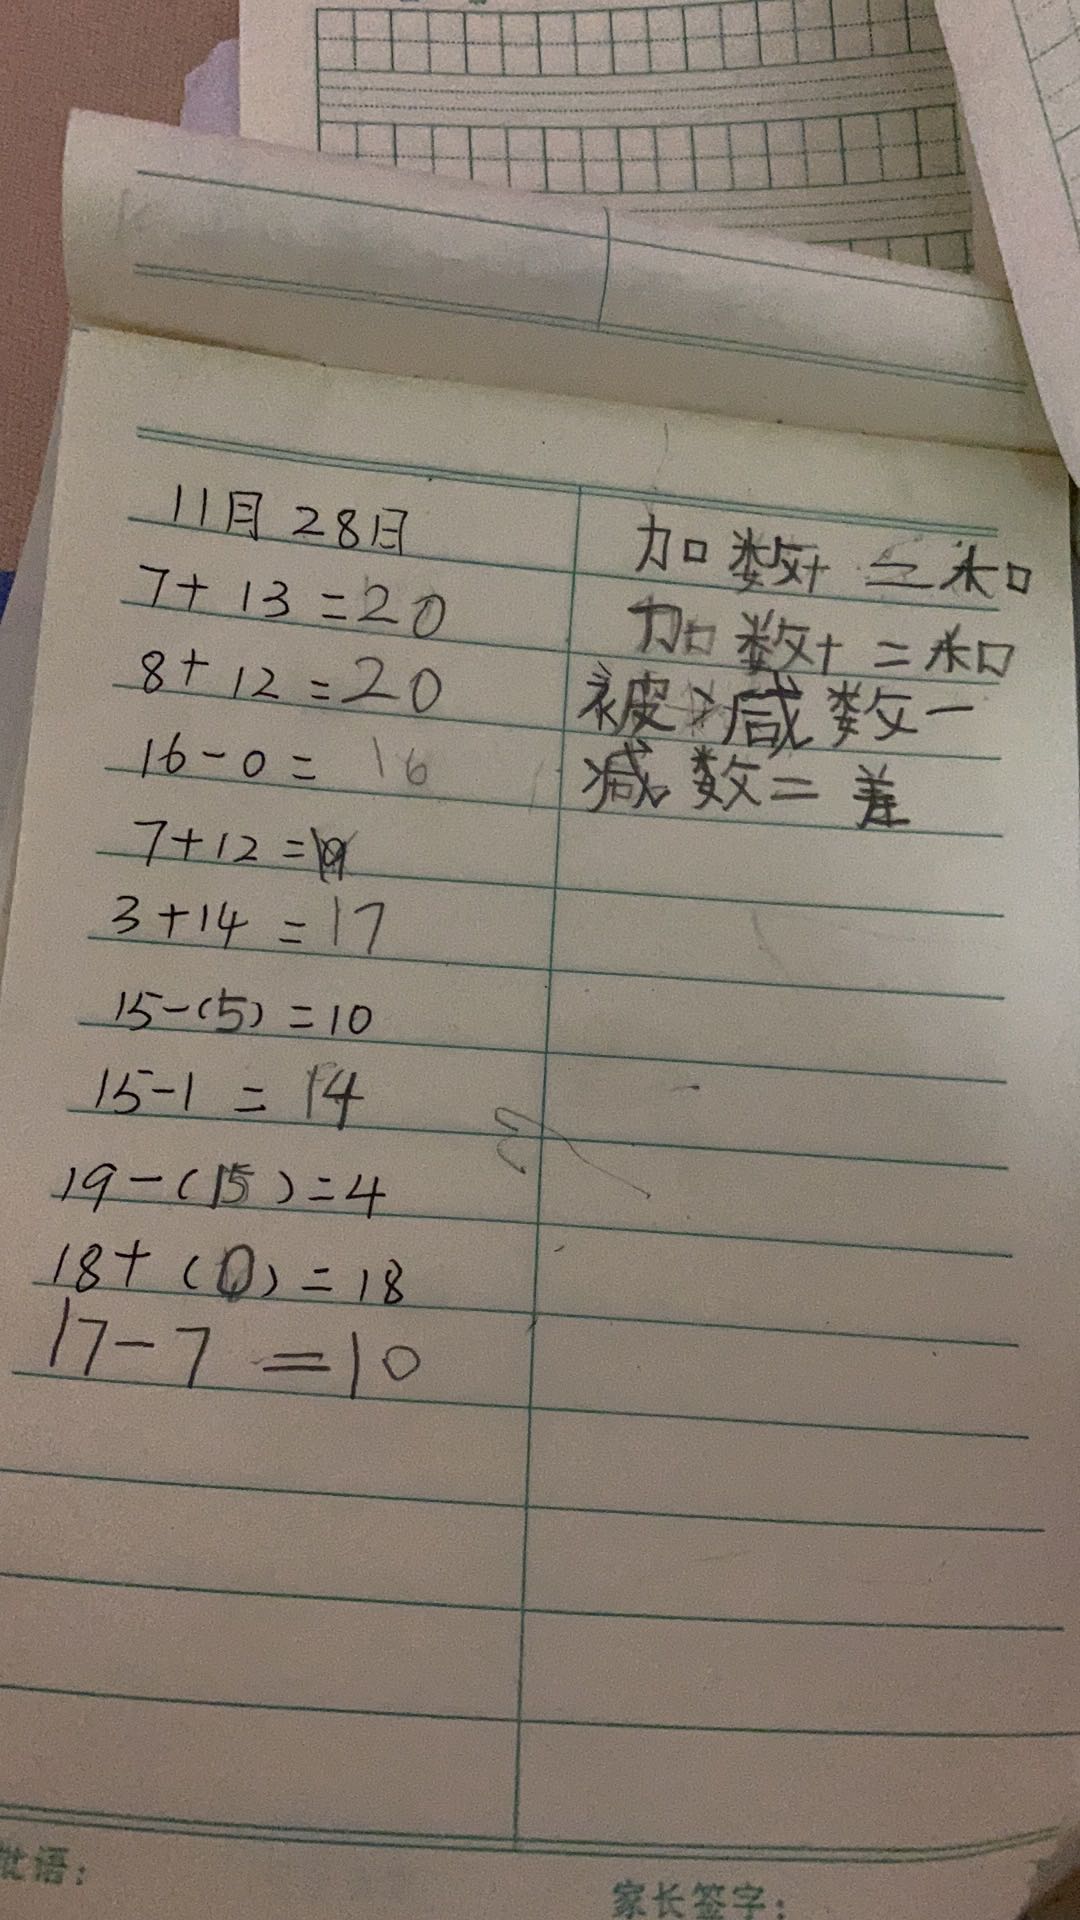 11月28日
7+13=20
8+12=20
16-0=16
7+12=
3+14=17
15-(5)=10
15-1=14
19-(15)=4
18+(0)=18
17-7=10
加数+=和
加数+=和
被减数-
减数=差
批语:
家长签字: